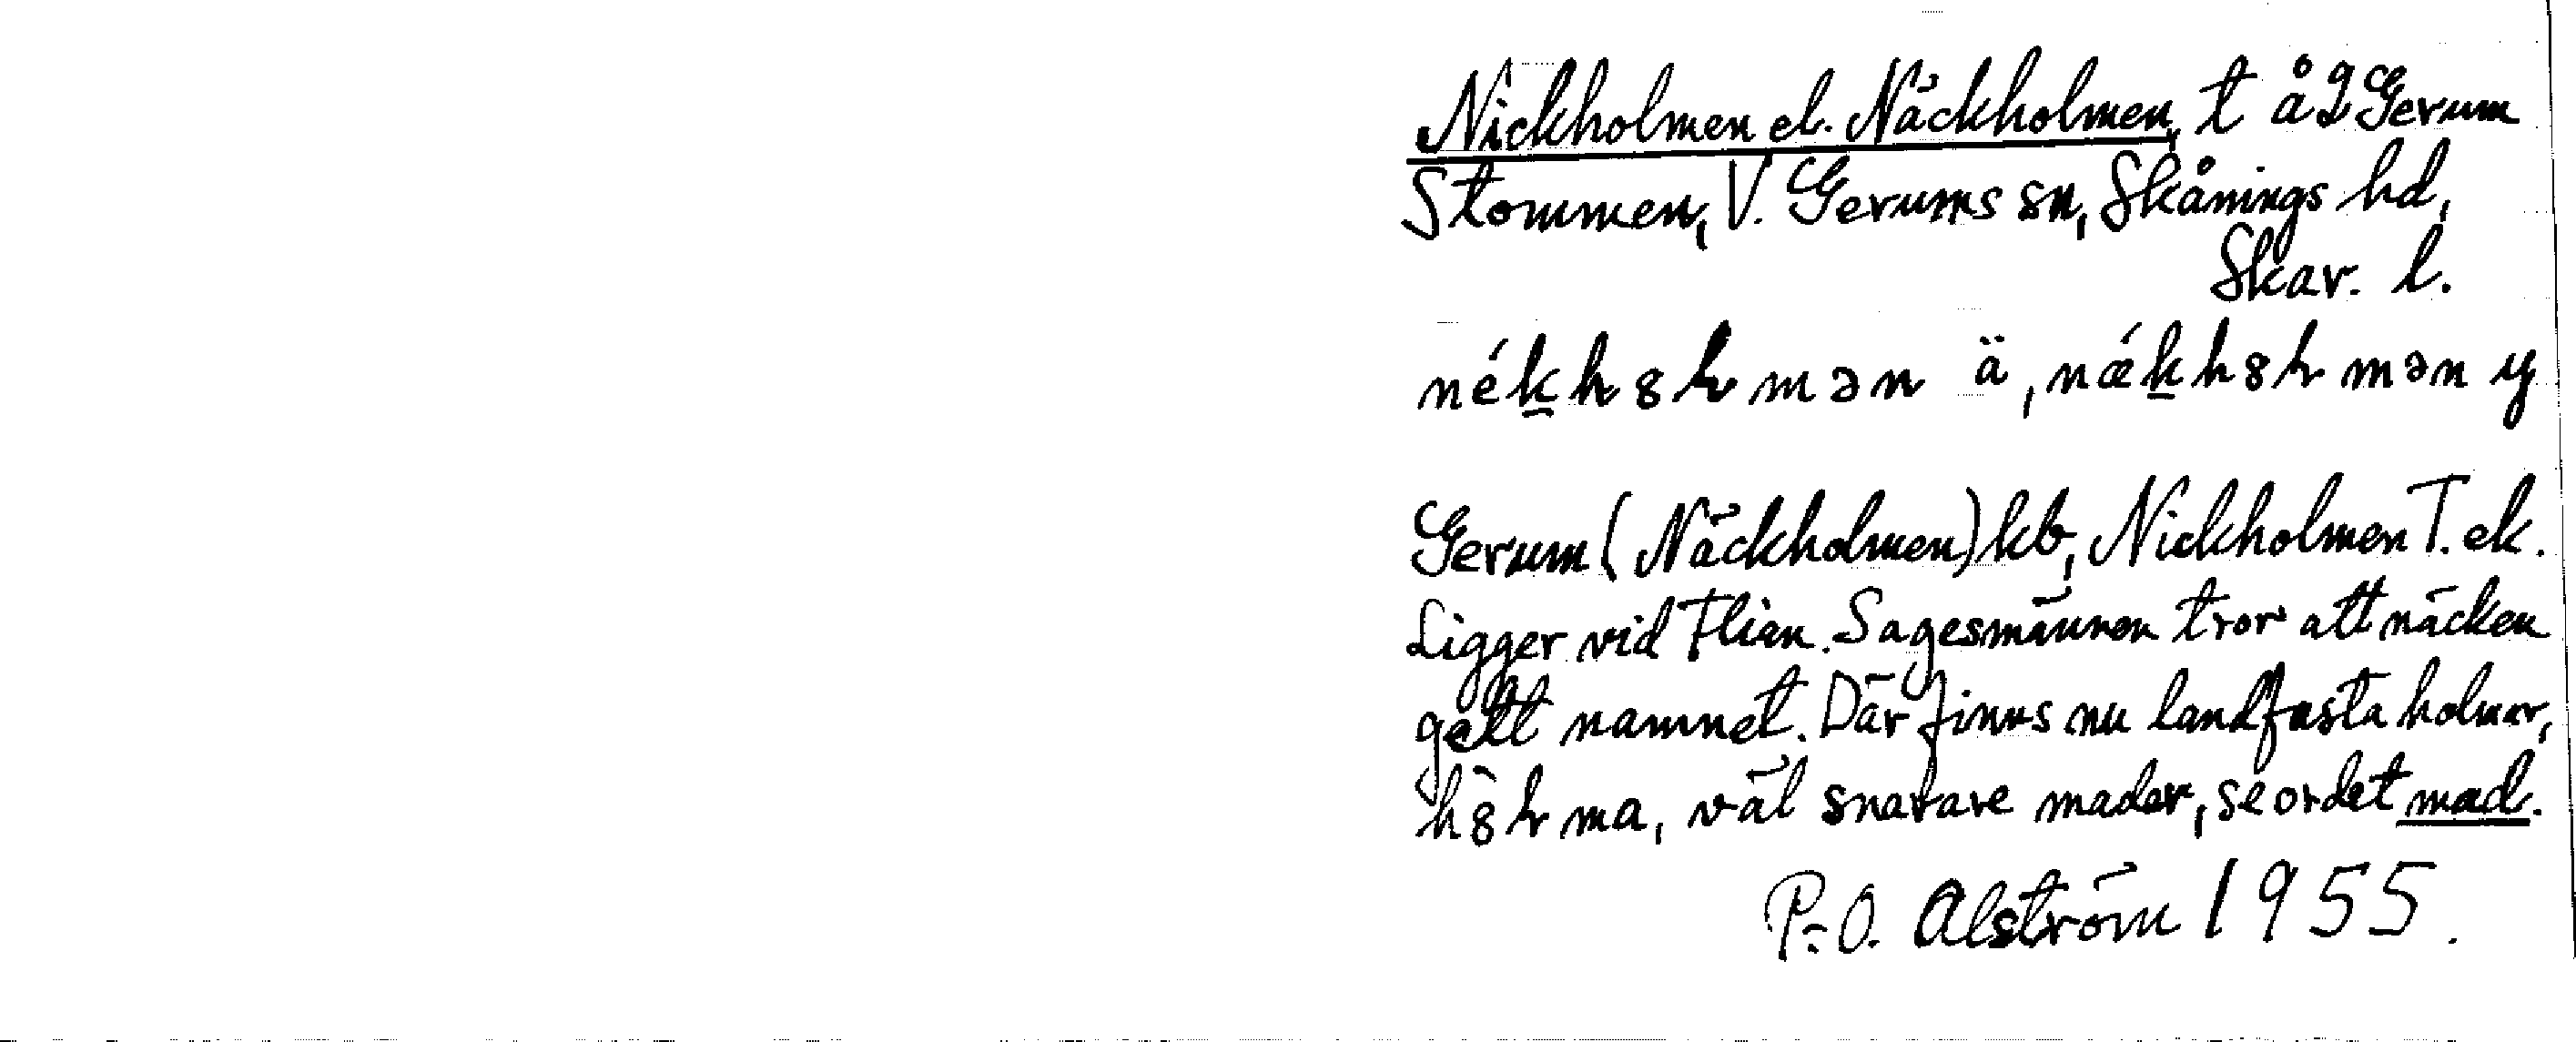 Nickholmen el. Näckholmen, t å 2 Gerum
Stommen, V. Gerums sn, Skånings hd,
Skar. l.
nékh8lmən ä, nǽkh8lmən y
Gerum (Näckholmen) kb, Nickholmen T. ek.
Ligger vid Flian. Sagesmännen tror att näcken
gett namnet. Där finns nu landfasta holmar,
h8̀lma, väl snarare mader, se ordet mad.
P.-O. Alström 1955.